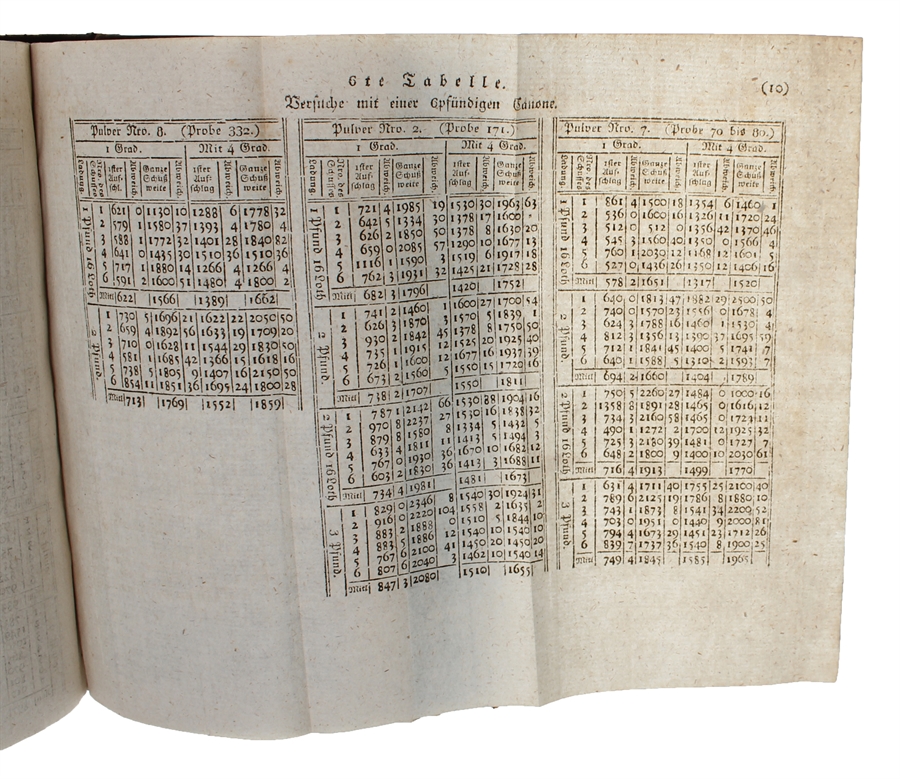 (10)
6te Tabelle.
Versuche mit einer 6pfündigen Canone.
Pulver Nro. 8. (Probe 332.)
1 Grad. Mit 4 Grad.
Ladung. Nro des Schusses 1ster Auf-schl. Abweich. Ganze Schuß weite Abweich. 1ster Auf-schlag Abweich. Ganze Schuß weite Abweich.
1 Pfund 16 Loth
1 621 0 1130 10 1288 6 1778 32
2 579 1 1580 37 1393 4 1780 4
3 588 1 1772 32 1401 28 1840 82
4 641 0 1435 30 1510 36 1510 36
5 717 1 1880 14 1266 4 1266 4
6 591 2 1600 51 1480 4 1800 2
Mitl 622 1566 1389 1662
2 Pfund.
1 730 5 1696 21 1622 22 2050 50
2 659 4 1892 56 1633 19 1709 20
3 710 0 1628 11 1544 29 1830 50
4 581 1 1685 42 1366 15 1618 16
5 738 5 1805 9 1407 16 2150 50
6 854 11 1851 36 1695 24 1800 28
Mitl 713 1769 1552 1859
Pulver Nro. 2. (Probe 171.)
1 Grad. Mit 4 Grad.
Ladung. Nro des Schusses 1ster Auf-schlag Abweich. Ganze Schuß weite Abweich. 1ster Auf-schlag Abweich. Ganze Schuß weite Abweich.
1 Pfund 16 Loth
1 721 4 1985 19 1530 30 1963 63
2 642 5 1334 30 1378 17 1600
3 626 2 1850 50 1378 8 1630 20
4 659 0 2085 57 1290 10 1677 13
5 1116 1 1590 3 1519 6 1917 18
6 762 3 1931 32 1425 21 1728 28
Mitl 682 3 1796 1420 1752
2 Pfund.
1 741 2 1460 1 1600 27 1700 54
2 626 3 1870 3 1570 5 1839 1
3 930 2 1842 45 1378 8 1750 50
4 735 1 1915 12 1525 20 1925 40
5 726 1 1600 12 1677 16 1937 39
6 673 2 1560 5 1550 15 1720 16
Mitl 738 2 1707 1550 1811
2 Pfund 16 Loth
1 787 1 2142 66 1530 88 1904 16
2 970 8 2237 27 1530 16 1838 32
3 879 8 1580 8 1334 5 1432 5
4 633 4 1811 11 1413 5 1494 3
5 767 0 1930 36 1670 10 1682 12
6 603 2 1830 36 1413 3 1688 11
Mitl 734 4 1981 1481 1673
3 Pfund.
1 829 0 2346 8 1540 30 1924 31
2 916 0 2220 104 1558 2 1635 2
3 883 2 1888 0 1510 5 1844 10
4 883 5 1886 12 1540 10 1540 10
5 767 6 2100 41 1450 20 1450 20
6 807 6 2040 3 1462 10 1540 14
Mitl 847 3 2080 1510 1655
Pulver Nro. 7. (Probe 70 bis 80.)
1 Grad. Mit 4 Grad.
Ladung. Nro des Schusses 1ster Auf-schlag Abweich. Ganze Schuß weite Abweich. 1ster Auf-schlag Abweich. Ganze Schuß weite Abweich.
1 Pfund 16 Loth
1 861 4 1500 18 1354 6 1460 1
2 536 0 1600 16 1326 11 1720 24
3 512 0 512 0 1356 42 1370 46
4 545 3 1560 40 1350 0 1566 4
5 760 1 2030 12 1168 12 1601 5
6 527 0 1436 26 1350 12 1406 16
Mitl 578 2 1651 1317 1520
2 Pfund.
1 640 0 1813 47 1882 29 2500 50
2 740 0 1570 23 1556 0 1678 4
3 624 3 1788 16 1460 1 1530 4
4 812 3 1356 13 1390 37 1695 59
5 712 1 1841 45 1400 5 1741 7
6 640 1 1588 5 1310 2 1593 7
Mitl 694 2 1660 1404 1789
2 Pfund 16 Loth
1 750 5 2260 27 1484 0 1000 16
2 1358 8 1891 28 1465 0 1616 12
3 734 3 2160 58 1465 0 1723 11
4 490 1 1272 2 1700 12 1925 32
5 725 3 2180 39 1481 0 1727 7
6 648 2 1800 9 1400 10 2030 61
Mitl 716 4 1913 1499 1770
3 Pfund.
1 631 4 1711 40 1755 25 2100 40
2 789 6 2125 19 1786 8 1880 10
3 743 1 1873 8 1541 34 2209 52
4 703 0 1951 0 1440 9 2000 81
5 794 4 1673 29 1451 23 1712 26
6 839 7 1737 36 1540 8 1900 25
Mitl 749 4 1845 1585 1965